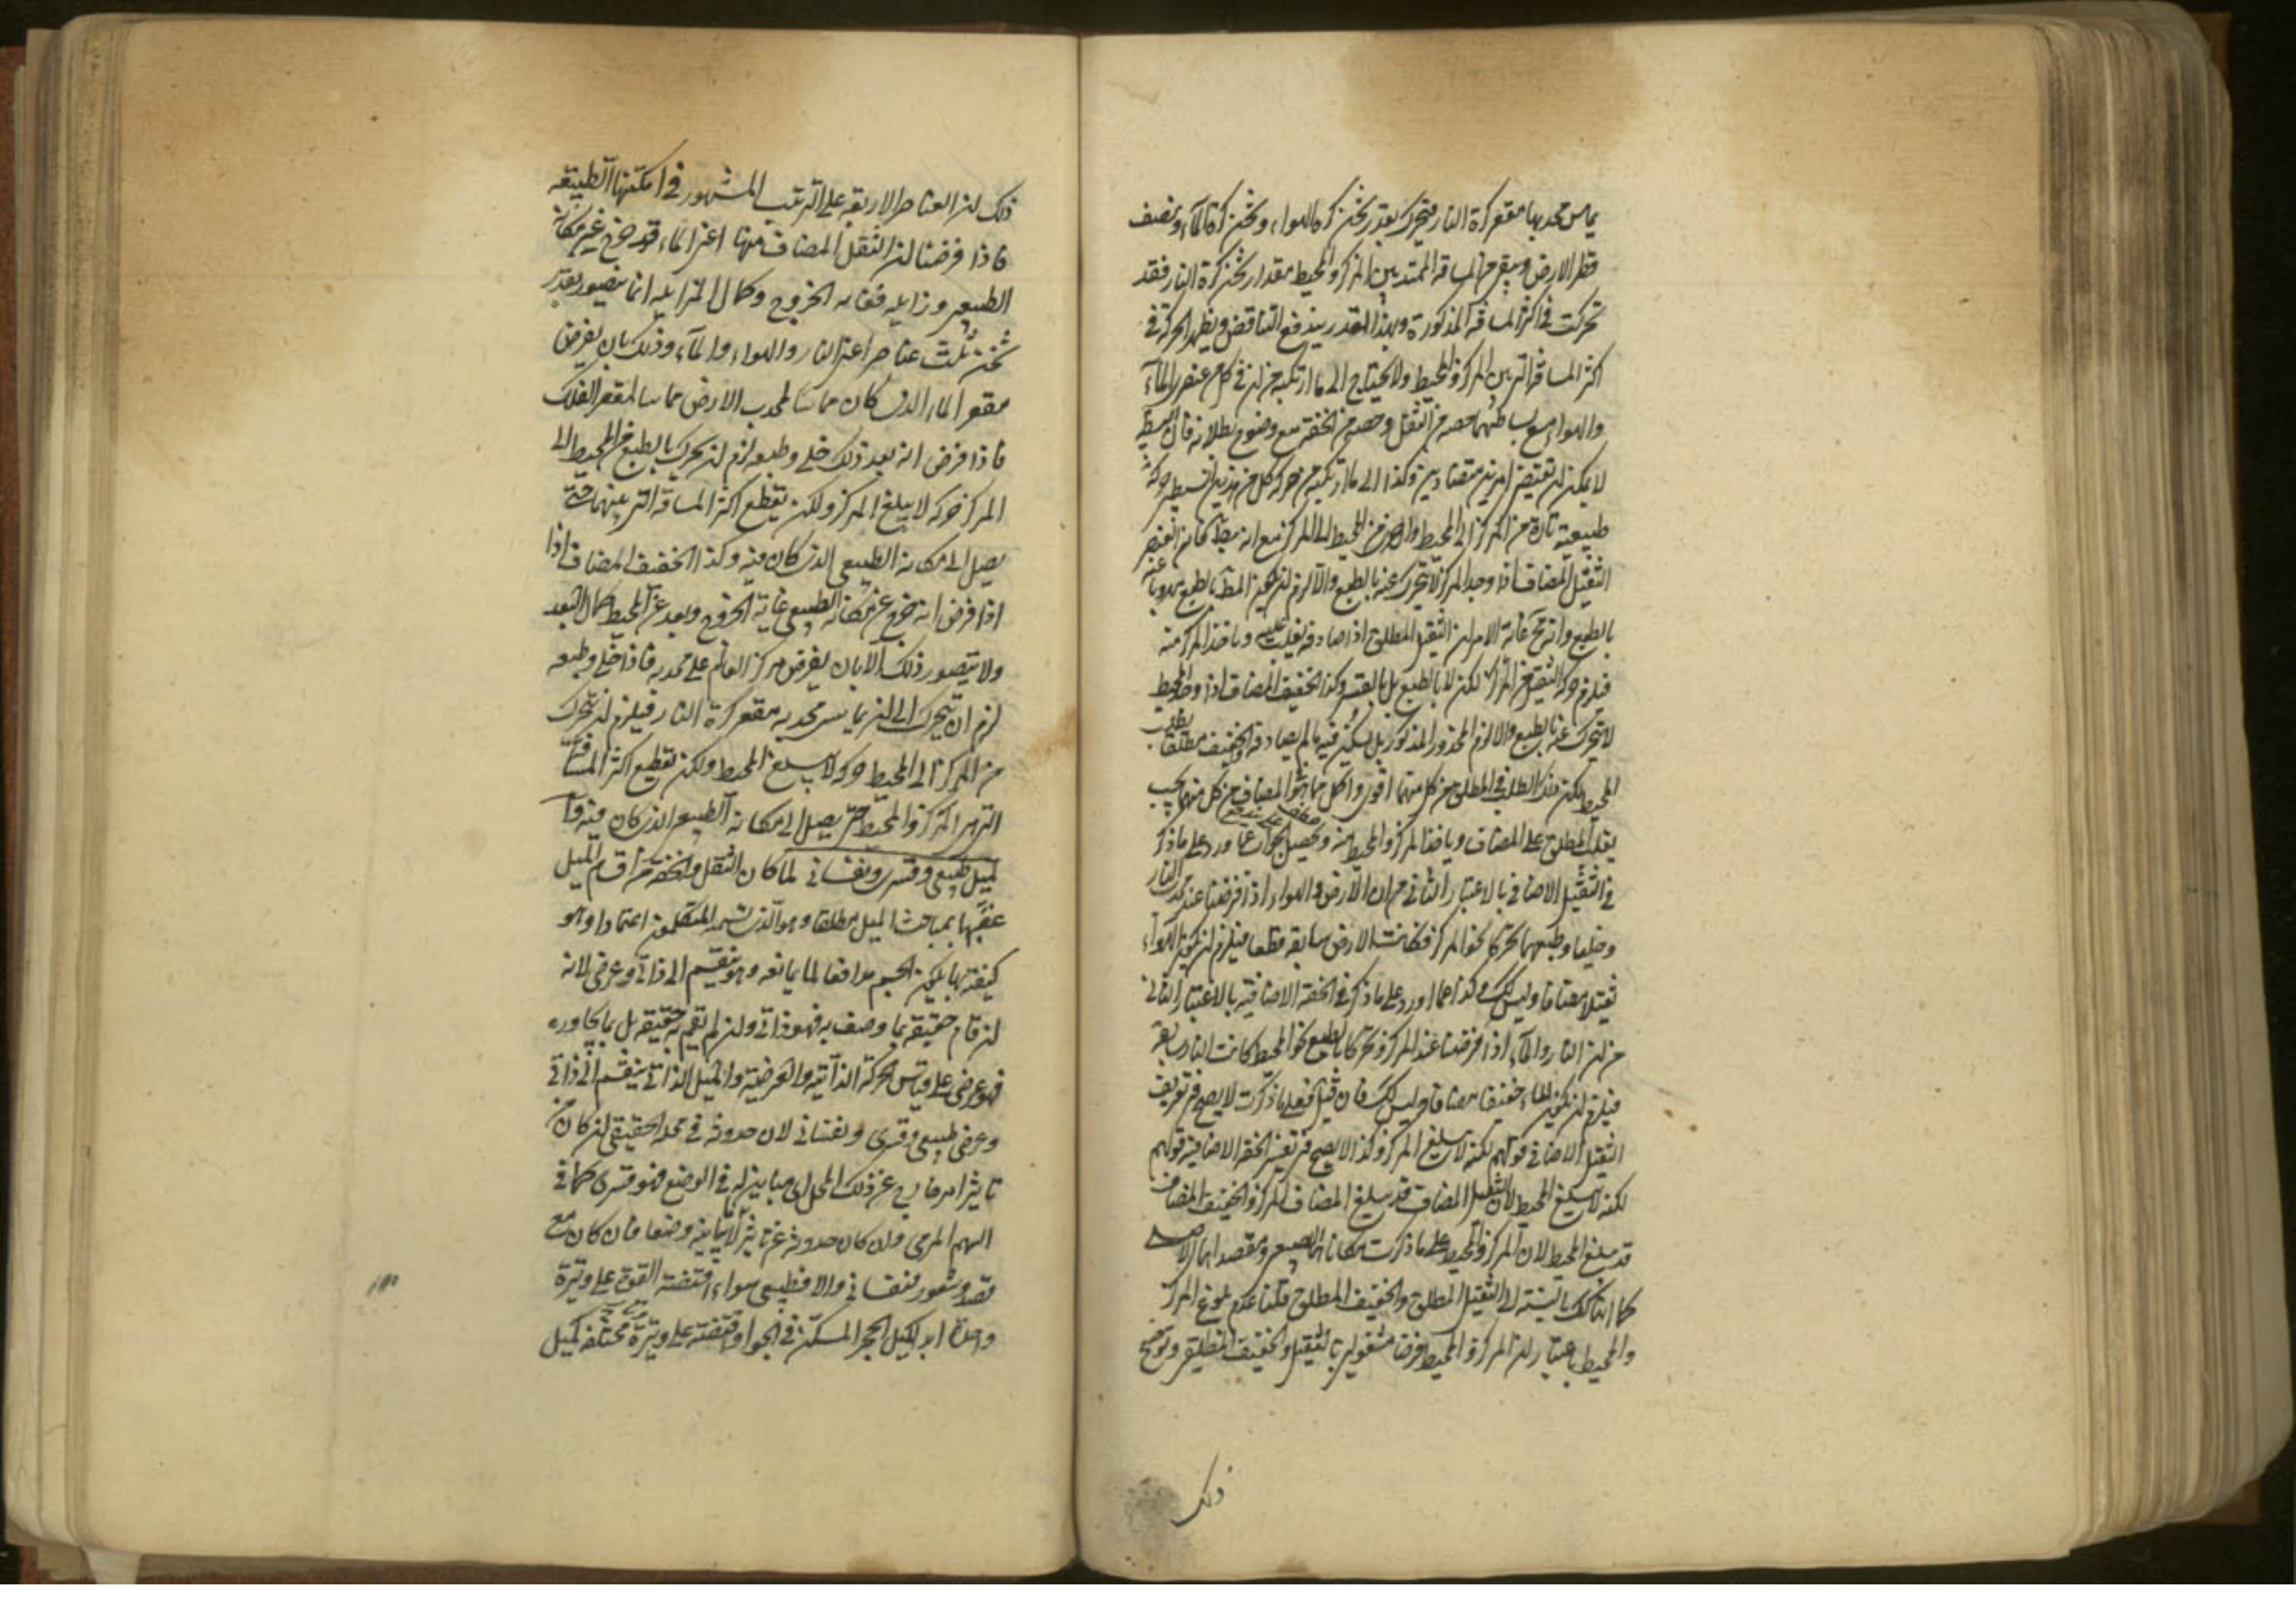 يماس محدبها مقعر كرة النار فيتحرك بقدر ثخن كرة الهواء وثخن كرة الماء ونصف
قطر الارض ويبقى من المسافة الممتدة بين المركز والمحيط مقدار ثخن كرة النار فقد
تحركت في اكثر المسافة المذكورة وبهذا القدر يندفع التناقض ويظهر الحركة في
اكثر المسافة التي بين المركز والمحيط ولا يحتاج الى ما ارتكبه من ان في كل من عنصر الماء
والهواء مع بساطتهما حصة من الثقل وحصة من الخفة مع وضوح بطلانه فان البسيط
لا يمكن ان يقتضي امرين متضادين وكذا الى ما ارتكبه من حركة كل من هذين البسيطين حركة
طبيعية تارة من المركز الى المحيط واخرى من المحيط الى المركز مع انه بط فان العنصر
الثقيل المضاف اذا وجد المركز لا يتحرك عنه بالطبع والا لزم ان يكون المط بالطبع مهروبا عنه
بالطبع وانه مح غاية الامر ان الثقيل المطلق اذا صادفه يغلب عليه وياخذ المركز منه
فيلزم حركة الثقيل عن المركز لكن لا بالطبع بل بالقسر وكذا الخفيف المضاف اذا وجد المحيط
لا يتحرك عنه بالطبع والا لزم المحذور المذكور بل يسكن فيه ما لم يصادفه الخفيف مطلقا
المحيط لكن هذا الطلب في المطلق من كل منهما اقوى واكمل مما في المضاف من كل منهما فيجب
يغلب المطلق على المضاف وياخذ المركز والمحيط منه ويحصل الجواب عما ورد على ما ذكر
في الثقيل الاضافي بالاعتبار الثاني من ان الارض والهواء اذا فرضنا عند كرة النار
وخليا وطبعهما تحركا نحو المركز فكانت الارض سابقة قطعا فيلزم ان يكون الهواء
ثقيلا مضافا وليس كك وكذا عما اورد على ما ذكر في الخفة الاضافية بالاعتبار الثاني
من ان النار والماء اذا فرضنا عند المركز وتحركا بالطبع نحو المحيط كانت النار سابقة
فيلزم ان يكون الماء خفيفا مضافا وليس كك فان قيل فعلى ما ذكرت لا يصح في تعريف
الثقيل الاضافي قولهم لكنه لا يبلغ المركز وكذا لا يصح في تفسير الخفة الاضافية قولهم
لكنه لا يبلغ المحيط لان الثقيل المضاف قد يبلغ المركز والخفيف المضاف
قد يبلغ المحيط لان المركز والمحيط على ما ذكرت مكانهما الطبيعي ومقصدهما الاصلي
كما انه كك بالنسبة الى الثقيل المطلق والخفيف المطلق قلنا عدم بلوغ المركز
والمحيط باعتبار ان المركز والمحيط فرضا مشغولين بالثقيل والخفيف المطلقين وتوضيح
ذلك
ذلك ان العناصر الاربعة على الترتيب المشهور في امكنتها الطبيعة
فاذا فرضنا ان الثقل المضاف منها اعني الماء قد خرج عن مكانه
الطبيعي وزايله فغاية الخروج وكمال المزايلة انما يتصور بقدر
ثخن ثلث عناصر اعني النار والهواء والماء وذلك بان يفرض
مقعر الماء الذي كان مماسا لمحدب الارض مماسا لمقعر الفلك
فاذا فرض انه بعد ذلك خلي وطبعه لزم ان يتحرك بالطبع من المحيط الى
المركز حركة لا يبلغ المركز ولكن يقطع اكثر المسافة التي بينهما حتى
يصل الى مكانه الطبيعي الذي كان فيه وكذا الخفيف المضاف اذا
اذا فرض انه خرج عن مكانه الطبيعي غاية الخروج وبعد عن المحيط كمال البعد
ولا يتصور ذلك الا بان يفرض مركز العالم على محدبه فاذا خلي وطبعه
لزم ان يتحرك الى ان يماس محدبه مقعر كرة النار فيلزم ان يتحرك
من المركز الى المحيط حركة لا يبلغ المحيط ولكن يقطع اكثر المسافة
التي بين المركز والمحيط حتى يصل الى مكانه الطبيعي الذي كان فيه قال
الميل طبيعي وقسري ونفساني لما كان الثقل والخفة من اقسام الميل
عقبها بمباحث الميل مطلقا وهو الذي يسميه المتكلمون اعتمادا وهو
كيفية بها يكون الجسم مدافعا لما يمانعه وهو ينقسم الى ذاتي وعرضي لانه
ان قام حقيقة بما وصف به فهو ذاتي وان لم يقم به حقيقة بل بما يجاوره
فهو عرضي على قياس الحركة الذاتية والعرضية والميل الذاتي ينقسم الى ذاتي
وعرضي طبيعي وقسري ونفساني لان حدوثه في محله الحقيقي ان كان من
تاثير امر خارج عن ذلك المحل اي مباين له في الوضع فهو قسري كما في
السهم المرمي وان كان حدوثه عن تاثير لا يباينه وضعا فان كان مع
قصد وشعور فنفساني والا فطبيعي سواء اقتضته القوة على وتيرة
واحدة ابدا كميل الحجر المسكن في الجو او اقتضته على وتيرة مختلفة كميل